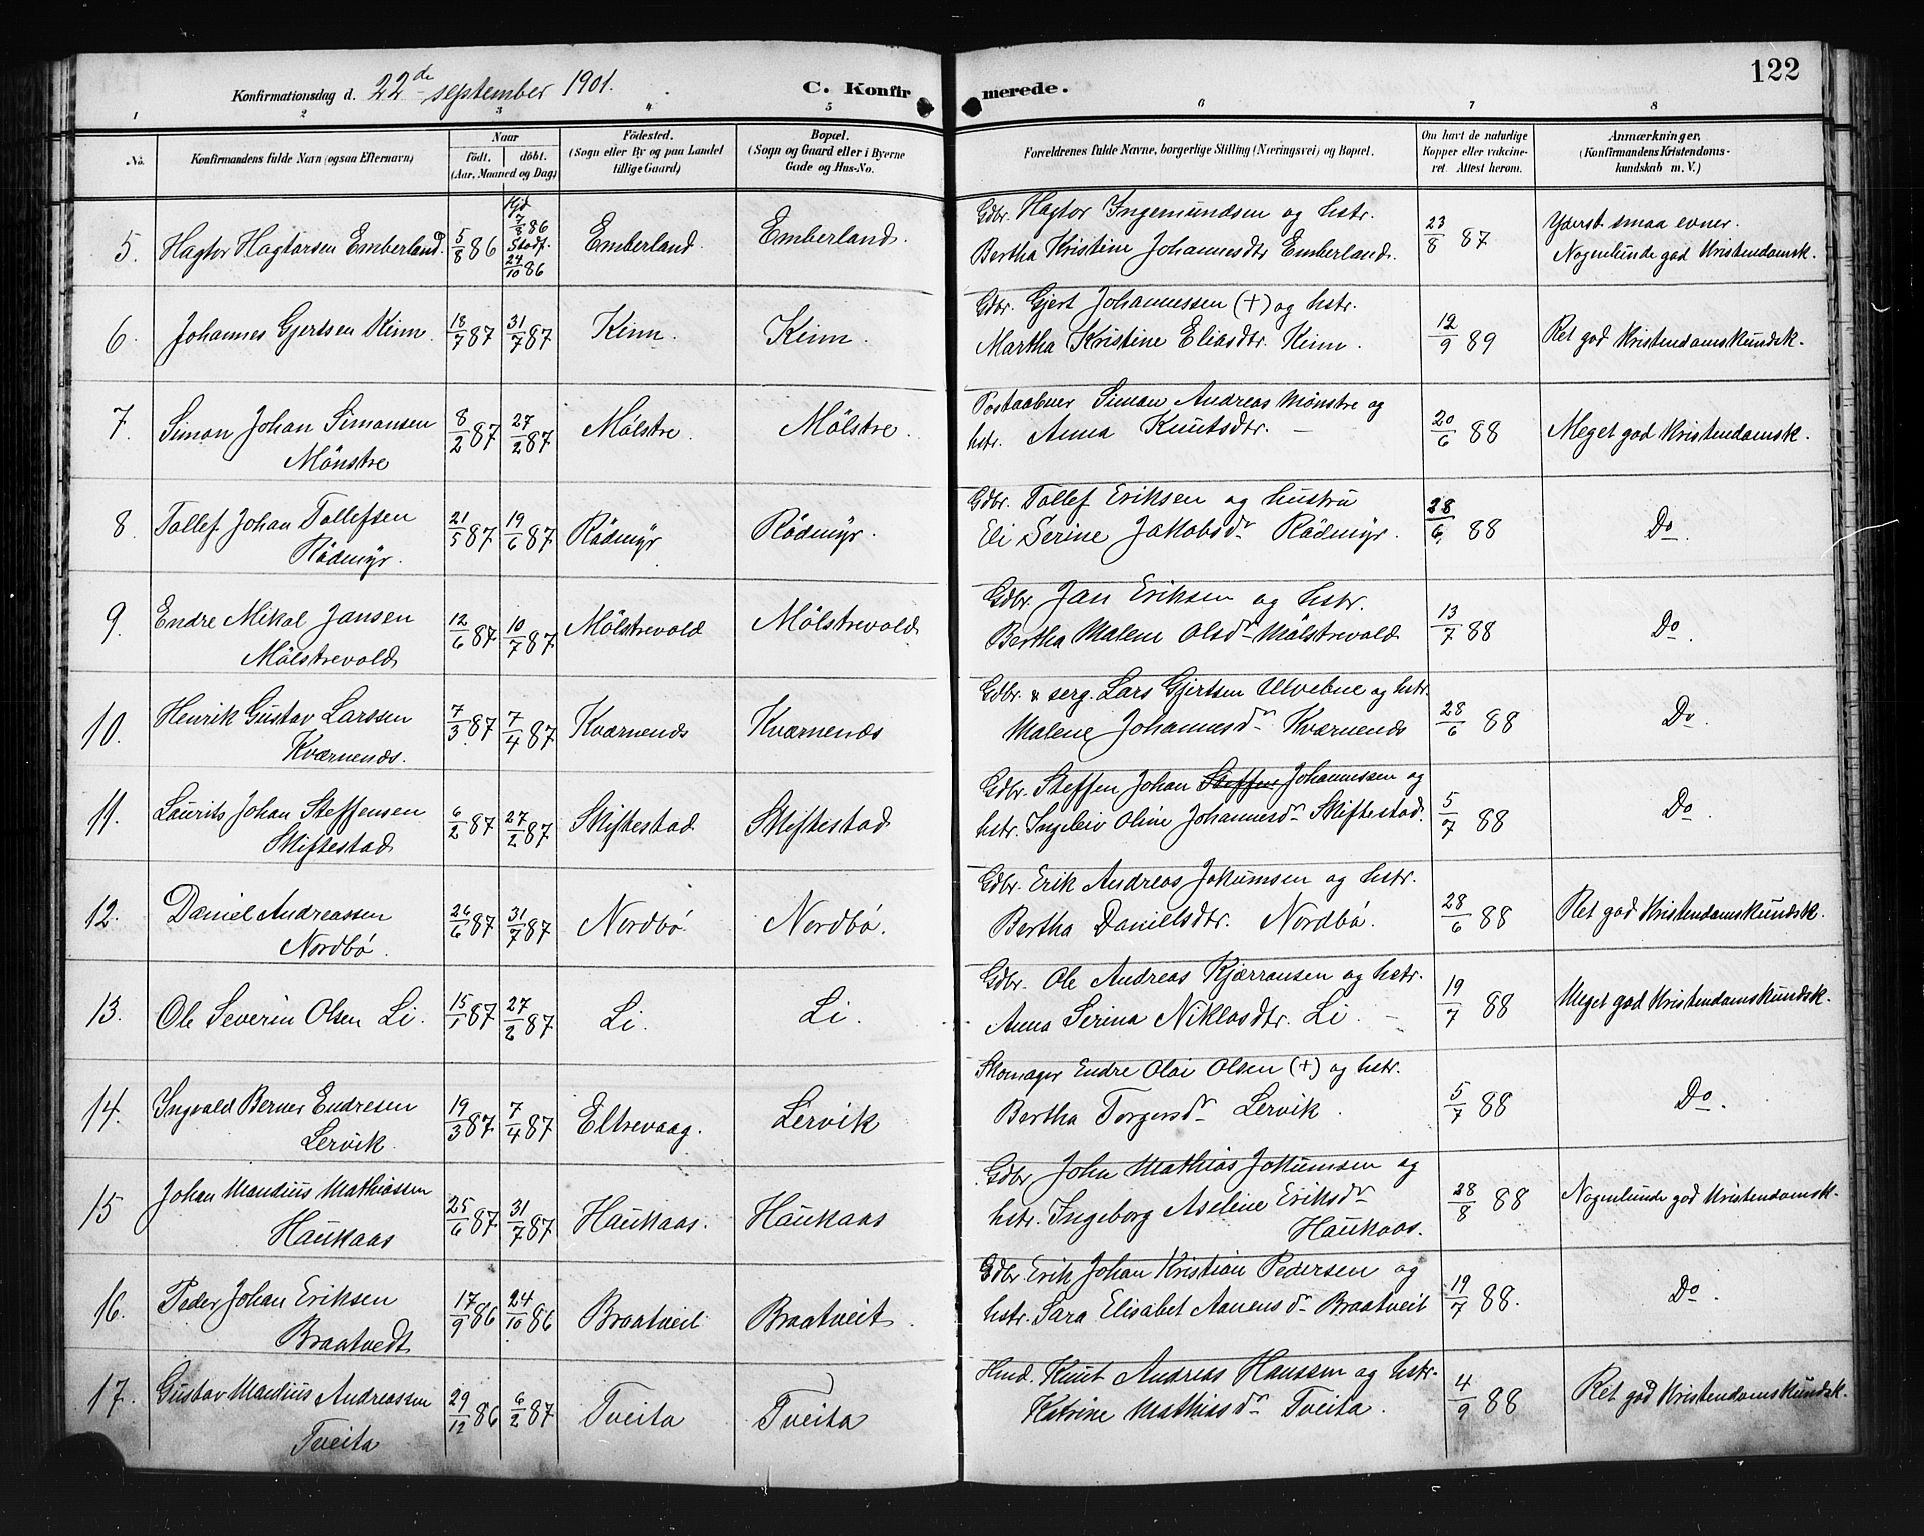 122
Konfirmationsdag d. 22de september 1901. C. Konfirmerede.
1 2 3 4 5 6 7 8
No. Konfirmandens fulde Navn (ogsaa Efternavn) Naar født. døbt. (Aar, Maaned og Dag) Födested. (Sogn eller By og paa Landet tillige Gaard) Bopæl. (Sogn og Gaard eller i Byerne Gade og Hus-No. Forældrenes fulde Navne, borgerlige Stilling (Næringsvei) og Bopæl. Om havt de naturlige Kopper eller vakcineret. Attest herom. Anmærkninger, (Konfirmandens Kristendomskundskab m. V.)
5. Hagtor Hagtorsen Emberland. 5/8 86 Hjd 7/8 86 Stadf. 24/10 86 Emberland. Emberland. Gdbr. Hagtor Ingemundsen og hstr. Bertha Kristine Johannesdtr Emberland. 23/8 87 Yderst smaa evner. Nogenlunde god Kristendomsk.
6. Johannes Gjertsen Kinn. 18/7 87 31/7 87 Kinn. Kinn. Gdbr. Gjert Johannessen (+) og hstr. Martha Kristine Eliasdtr. Kinn. 12/9 89 Ret god Kristendomskundsk.
7. Simon Johan Simonsen Mönstre 8/2 87 27/2 87 Mölstre. Mölstre. Postaabner Simon Andreas Mönstre og hstr. Anna Knutsdtr. — 20/6 88 Meget god Kristendomsk.
8. Tollef Johan Tollefsen Rödmyr. 21/5 87 19/6 87 Rödmyr Rödmyr. Gdbr. Tollef Eriksen og hustru Eli Serine Jakobsdr Rödmyr. 28/6 88 Do.
9. Endre Mikal Jansen Mölstrevold 12/6 87 10/7 87 Mölstrevold Mölstrevold Gdbr. Jan Eriksen og hstr. Bertha Malene Olsdr Mölstrevold 13/7 88 Do.
10. Henrik Gustav Larssen Kværnenæs. 7/3 87 7/4 87 Kværnenæs Kværnenæs Gdbr. & serg. Lars Gjertsen Ulvebne og hstr. Malene Johannesdr Kværnenæs 28/6 88 Do.
11. Laurits Johan Steffensen Skiftestad 6/2 87 27/2 87 Skiftestad Skiftestad Gdbr. Steffen Johan Steffen Johannessen og hstr. Ingeleiv Oline Johannesdr Skiftestad. 5/7 88 Do.
12. Daniel Andreassen Nordbö. 26/6 87 31/7 87 Nordbö Nordbö. Gdbr. Erik Andreas Jokumsen og hstr. Bertha Danielsdtr. Nordbö. 28/6 88 Ret god Kristendomskundsk.
13. Ole Severin Olsen Li. 15/1 87 27/2 87 Li. Li. Gdbr. Ole Andreas Kjærransen og hstr. Anna Serina Niklasdtr. Li. — 19/7 88 Meget god Kristendomskundsk.
14. Ingvald Berner Endresen Lervik. 19/3 87 7/4 87 Eltrevaag. Lervik Skomager Endre Olai Olsen (+) og hstr. Bertha Torgersdr Lervik. 5/7 88 Do.
15 Johan Mandius Mathiassen Haukaas 25/6 87 31/7 87 Haukaas. Haukaas Gdbr John Mathias Jokumsen og hstr. Ingeborg Aseline Eriksdr Haukaas. 28/8 88 Nogenlunde god Kristendomsk.
16. Peder Johan Eriksen Braatvedt 17/9 86 24/10 86 Braatveit Braatveit. Gdbr. Erik Johan Kristian Pedersen og hstr. Sara Elisabet Aanensdr Braatveit 19/7 88. Do.
17. Gustav Mandius Andreassen Tveita 29/12 86 6/2 87 Tveita Tveita Hmd. Knut Andreas Hanssen og hstr. Katrine Mathiasdr Tveita. 4/9 88 Ret god Kristendomskundsk.